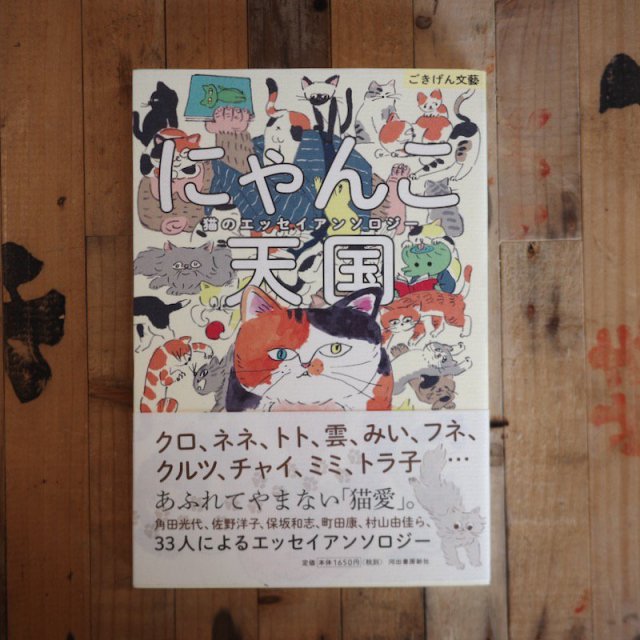 ごきげん文藝
にゃんこ
猫のエッセイアンソロジー
天国
クロ、ネネ、トト、雲、みい、フネ、
クルツ、チャイ、ミミ、トラ子……
あふれてやまない「猫愛」。
角田光代、佐野洋子、保坂和志、町田康、村山由佳ら、
33人によるエッセイアンソロジー
定価 本体1650円(税別) 河出書房新社